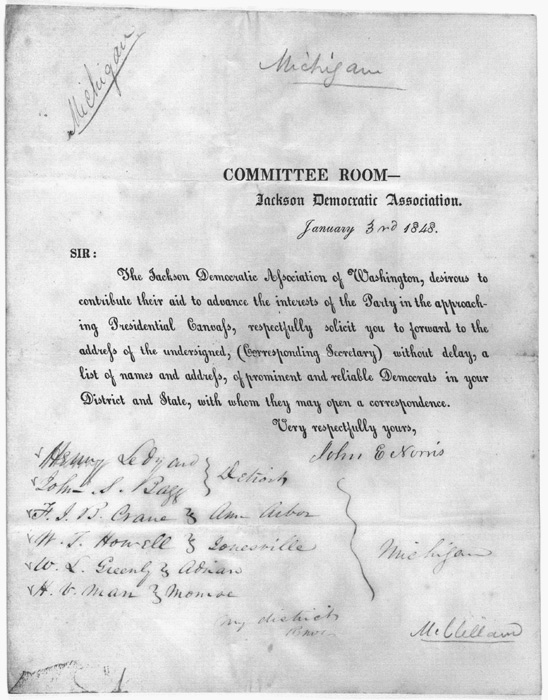 Michigan
Michigan
COMMITTEE ROOM—
Jackson Democratic Association.
January 3rd 1848.
SIR:
The Jackson Democratic Aſsociation of Washington, desirous to
contribute their aid to advance the interests of the Party in the approach-
ing Presidential Canvaſs, respectfully solicit you to forward to the
addreſs of the undersigned, (Corresponding Secretary) without delay, a
list of names and addreſs, of prominent and reliable Democrats in your
District and State, with whom they may open a correspondence.
Very respectfully yours,
John E Norris
Henry Ledyard
John S. Bagg } Detroit
F. J. B. Crane } Ann Arbor
W. T. Howell } Jonesville
W. L. Greenly } Adrian
H. V. Man } Monroe
Michigan
My district
McClelland